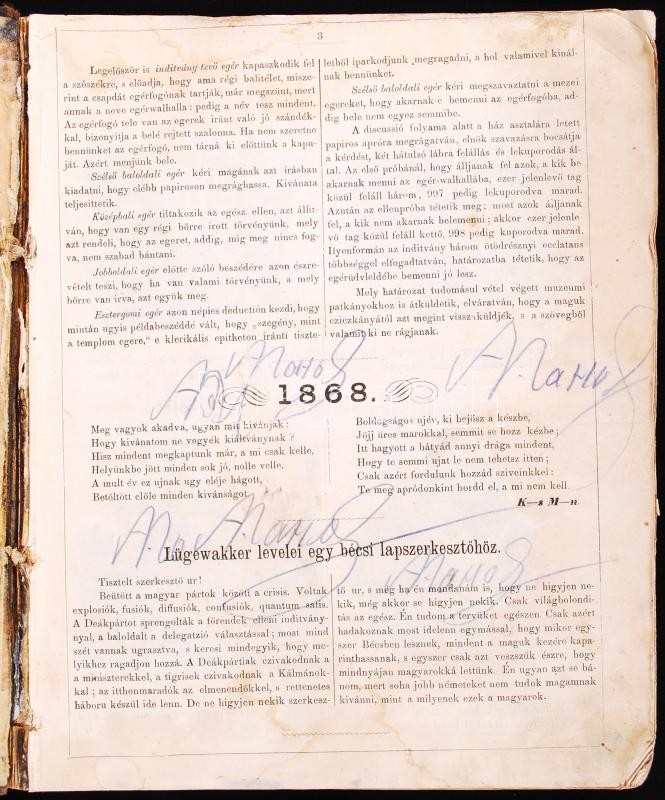 3
Legelőször is inditvány tevő egér kapaszkodik fel
a szószékre, s előadja, hogy ama régi balitélet, misze-
rint a csapdát egérfogónak tartják, már megszünt, mert
annak a neve egérwalhalla: pedig a név tesz mindent.
Az egérfogó tele van az egerek iránt való jó szándék-
kal, bizonyitja a belé rejtett szalonna. Ha nem szeretne
bennünket az egérfogó, nem tárná ki előttünk a kapu-
ját. Azért menjünk bele.
Szélső baloldali egér kéri magának azt irásban
kiadatni, hogy elébb papiroson megrághassa. Kivánata
teljesittetik.
Középbali egér tiltakozik az egész ellen, azt állit-
ván, hogy van egy régi bőrre irott törvényünk, mely
azt rendeli, hogy az egeret, addig, mig meg nincs fog-
va, nem szabad bántani.
Jobboldali egér előtte szóló beszédére azon észre-
vételt teszi, hogy ha van valami törvényünk, a mely
bőrre van irva, azt együk meg.
Esztergomi egér azon népies deductión kezdi, hogy
miután ugyis példabeszéddé vált, hogy „szegény, mint
a templom egere,“ e klerikális epitheton iránti tiszte-
letből iparkodjunk megragadni, a hol valamivel kinál-
nak bennünket.
Szélső baloldali egér kéri megszavaztatni a mezei
egereket, hogy akarnak-e bemenni az egérfogóba, ad-
dig bele nem egyez semmibe.
A discussió folyama alatt a ház asztalára letett
papiros apróra megrágatván, elnök szavazásra bocsátja
a kérdést, két hátulsó lábra felállás és lekuporodás ál-
tal. Az első próbánál, hogy álljanak fel azok, a kik be
akarnak menni az egér-walhallába, ezer jelenlevő tag
közül feláll három, 997 pedig lekuporodva marad.
Azután az ellenpróba tétetik meg: most azok álljanak
fel, a kik nem akarnak belemenni; akkor ezer jelenle-
vő tag közül feláll kettő, 998 pedig kuporodva marad.
Ilyenformán az inditvány három ötödrésznyi ecclatans
többséggel elfogadtatván, határozatba tétetik, hogy az
egérüdvleldébe bemenni jó lesz.
Mely határozat tudomásul vétel végett muzeumi
patkányokhoz is átküldetik, elváratván, hogy a maguk
cziczkányától azt megint visszaküldjék, s a szövegből
valamit ki ne rágjanak.
1868.
Meg vagyok akadva, ugyan mit kivánjak:
Hogy kivánatom ne vegyék kiáltványnak?
Hisz mindent megkaptunk már, a mi csak kelle,
Helyünkbe jött minden sok jó, nolle velle.
A mult év ez ujnak ugy eléje hágott,
Betöltött előle minden kivánságot.
Boldogságos ujév, ki hejösz a készbe,
Jöjj üres marokkal, semmit se hozz kézbe;
Itt hagyott a bátyád annyi drága mindent,
Hogy te semmi ujat le nem tehetsz itten;
Csak azért fordulunk hozzád sziveinkkel:
Te meg apródonkint hordd el, a mi nem kell.
K—s M—n.
Lügewakker levelei egy bécsi lapszerkesztőhöz.
Tisztelt szerkesztő ur!
Beütött a magyar pártok között a crisis. Voltak
explosiók, fusiók, diffusiók, confusiók, quantum satis.
A Deákpártot sprengolták a főrendek elleni inditvány-
nyal, a baloldalt a delegatzió választással; most mind
szét vannak ugrasztva, s keresi mindegyik, hogy me-
lyikhez ragadjon hozzá. A Deákpártiak czivakodnak a
a miniszterekkel, a tigrisek czivakodnak a Kálmánok-
kal; az itthonmaradók az elmenendőkkel, s rettenetes
háboru készül ide lenn. De ne higyjen nekik szerkesz-
tő ur, s még ha én mondanám is, hogy ne higyjen ne-
kik, még akkor se higyjen nekik. Csak világbolondi-
tás az egész. Én tudom a tervüket egészen. Csak azért
hadakoznak most idelenn egymással, hogy mikor egy-
szer Bécsben lesznek, mindent a maguk kezére kapa-
rinthassanak, s egyszer csak azt veszszük észre, hogy
mindnyájan magyarokká lettünk. Én ugyan azt se bá-
nom, mert soha jobb németeket nem tudok magamnak
kivánni, mint a milyenek ezek a magyarok.